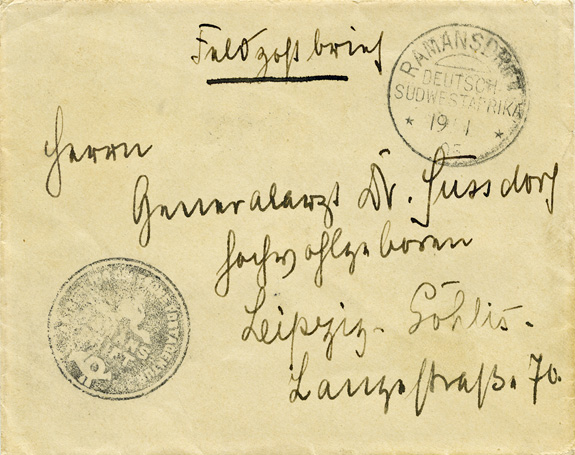 Feldpostbrief
RAMANSDRIFT
DEUTSCH-
SÜDWESTAFRIKA
* 19 1 *
Herrn
Generalarzt Dr. Sussdorf
Hochwohlgeboren
Leipzig-Gohlis.
Langestraße. 70.